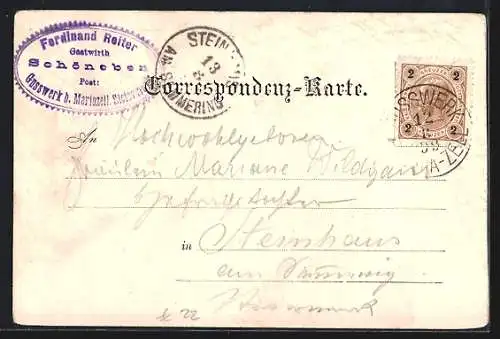 Ferdinand Reiter
Gastwirth
Schöneben
Post:
Gusswerk b. Mariazell, Steierm
STEIN
13
AM SEMMERING
Correspondenz-Karte.
2 2
2 2
GUSSWERK
12
99
A-ZELL
An Hochwohlgeboren
Fräulein Mariane Wildgans
in Steinhaus
am Semmering
Steiermark
22